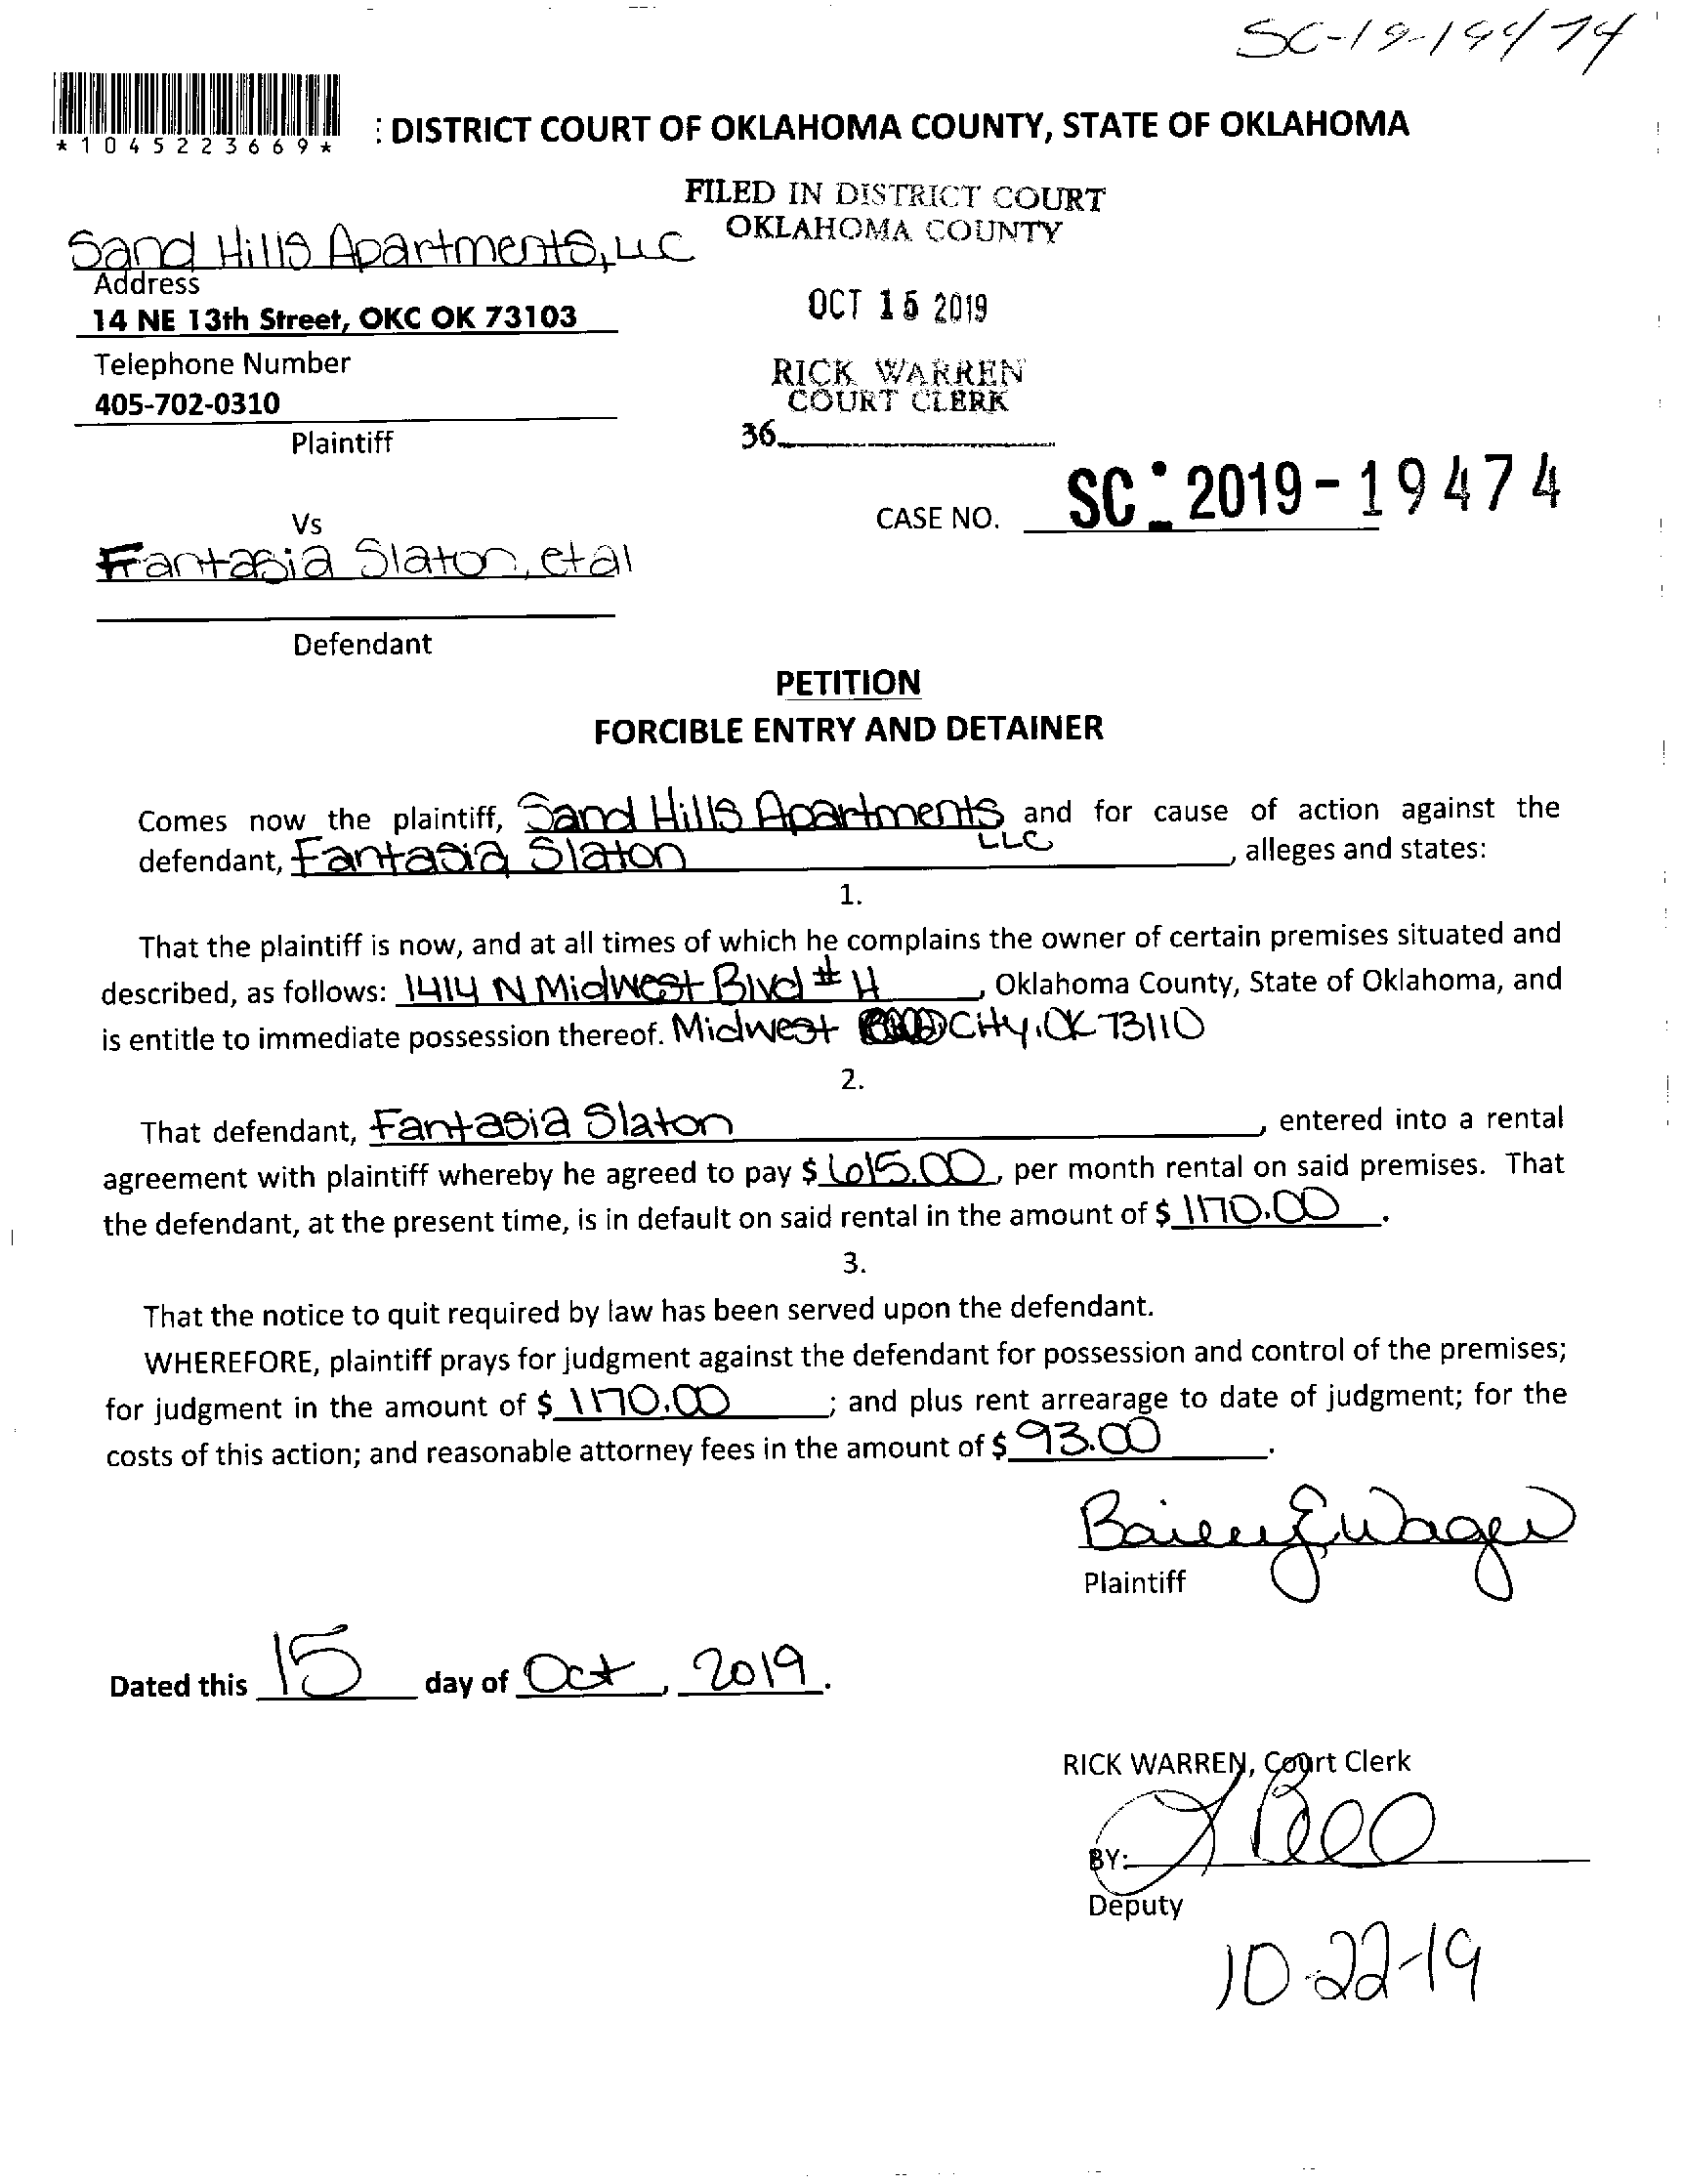 SC-19-19474
*1045223669*
: DISTRICT COURT OF OKLAHOMA COUNTY, STATE OF OKLAHOMA
FILED IN DISTRICT COURT
OKLAHOMA COUNTY
Sand Hills Apartments, LLC
Address
14 NE 13th Street, OKC OK 73103
OCT 15 2019
Telephone Number
405-702-0310
RICK WARREN
COURT CLERK
Plaintiff
36
CASE NO. SC-2019-19474
Vs
Fantasia Slaton, etal
Defendant
PETITION
FORCIBLE ENTRY AND DETAINER
Comes now the plaintiff, Sand Hills Apartments LLC and for cause of action against the
defendant, Fantasia Slaton, alleges and states:
1.
That the plaintiff is now, and at all times of which he complains the owner of certain premises situated and
described, as follows: 1414 N Midwest Blvd # H, Oklahoma County, State of Oklahoma, and
is entitle to immediate possession thereof. Midwest City, OK 73110
2.
That defendant, Fantasia Slaton, entered into a rental
agreement with plaintiff whereby he agreed to pay $ 615.00, per month rental on said premises. That
the defendant, at the present time, is in default on said rental in the amount of $ 1170.00.
3.
That the notice to quit required by law has been served upon the defendant.
WHEREFORE, plaintiff prays for judgment against the defendant for possession and control of the premises;
for judgment in the amount of $ 1170.00; and plus rent arrearage to date of judgment; for the
costs of this action; and reasonable attorney fees in the amount of $ 93.00.
Plaintiff
Dated this 15 day of Oct, 2019.
RICK WARREN, Court Clerk
BY:
Deputy
10-22-19